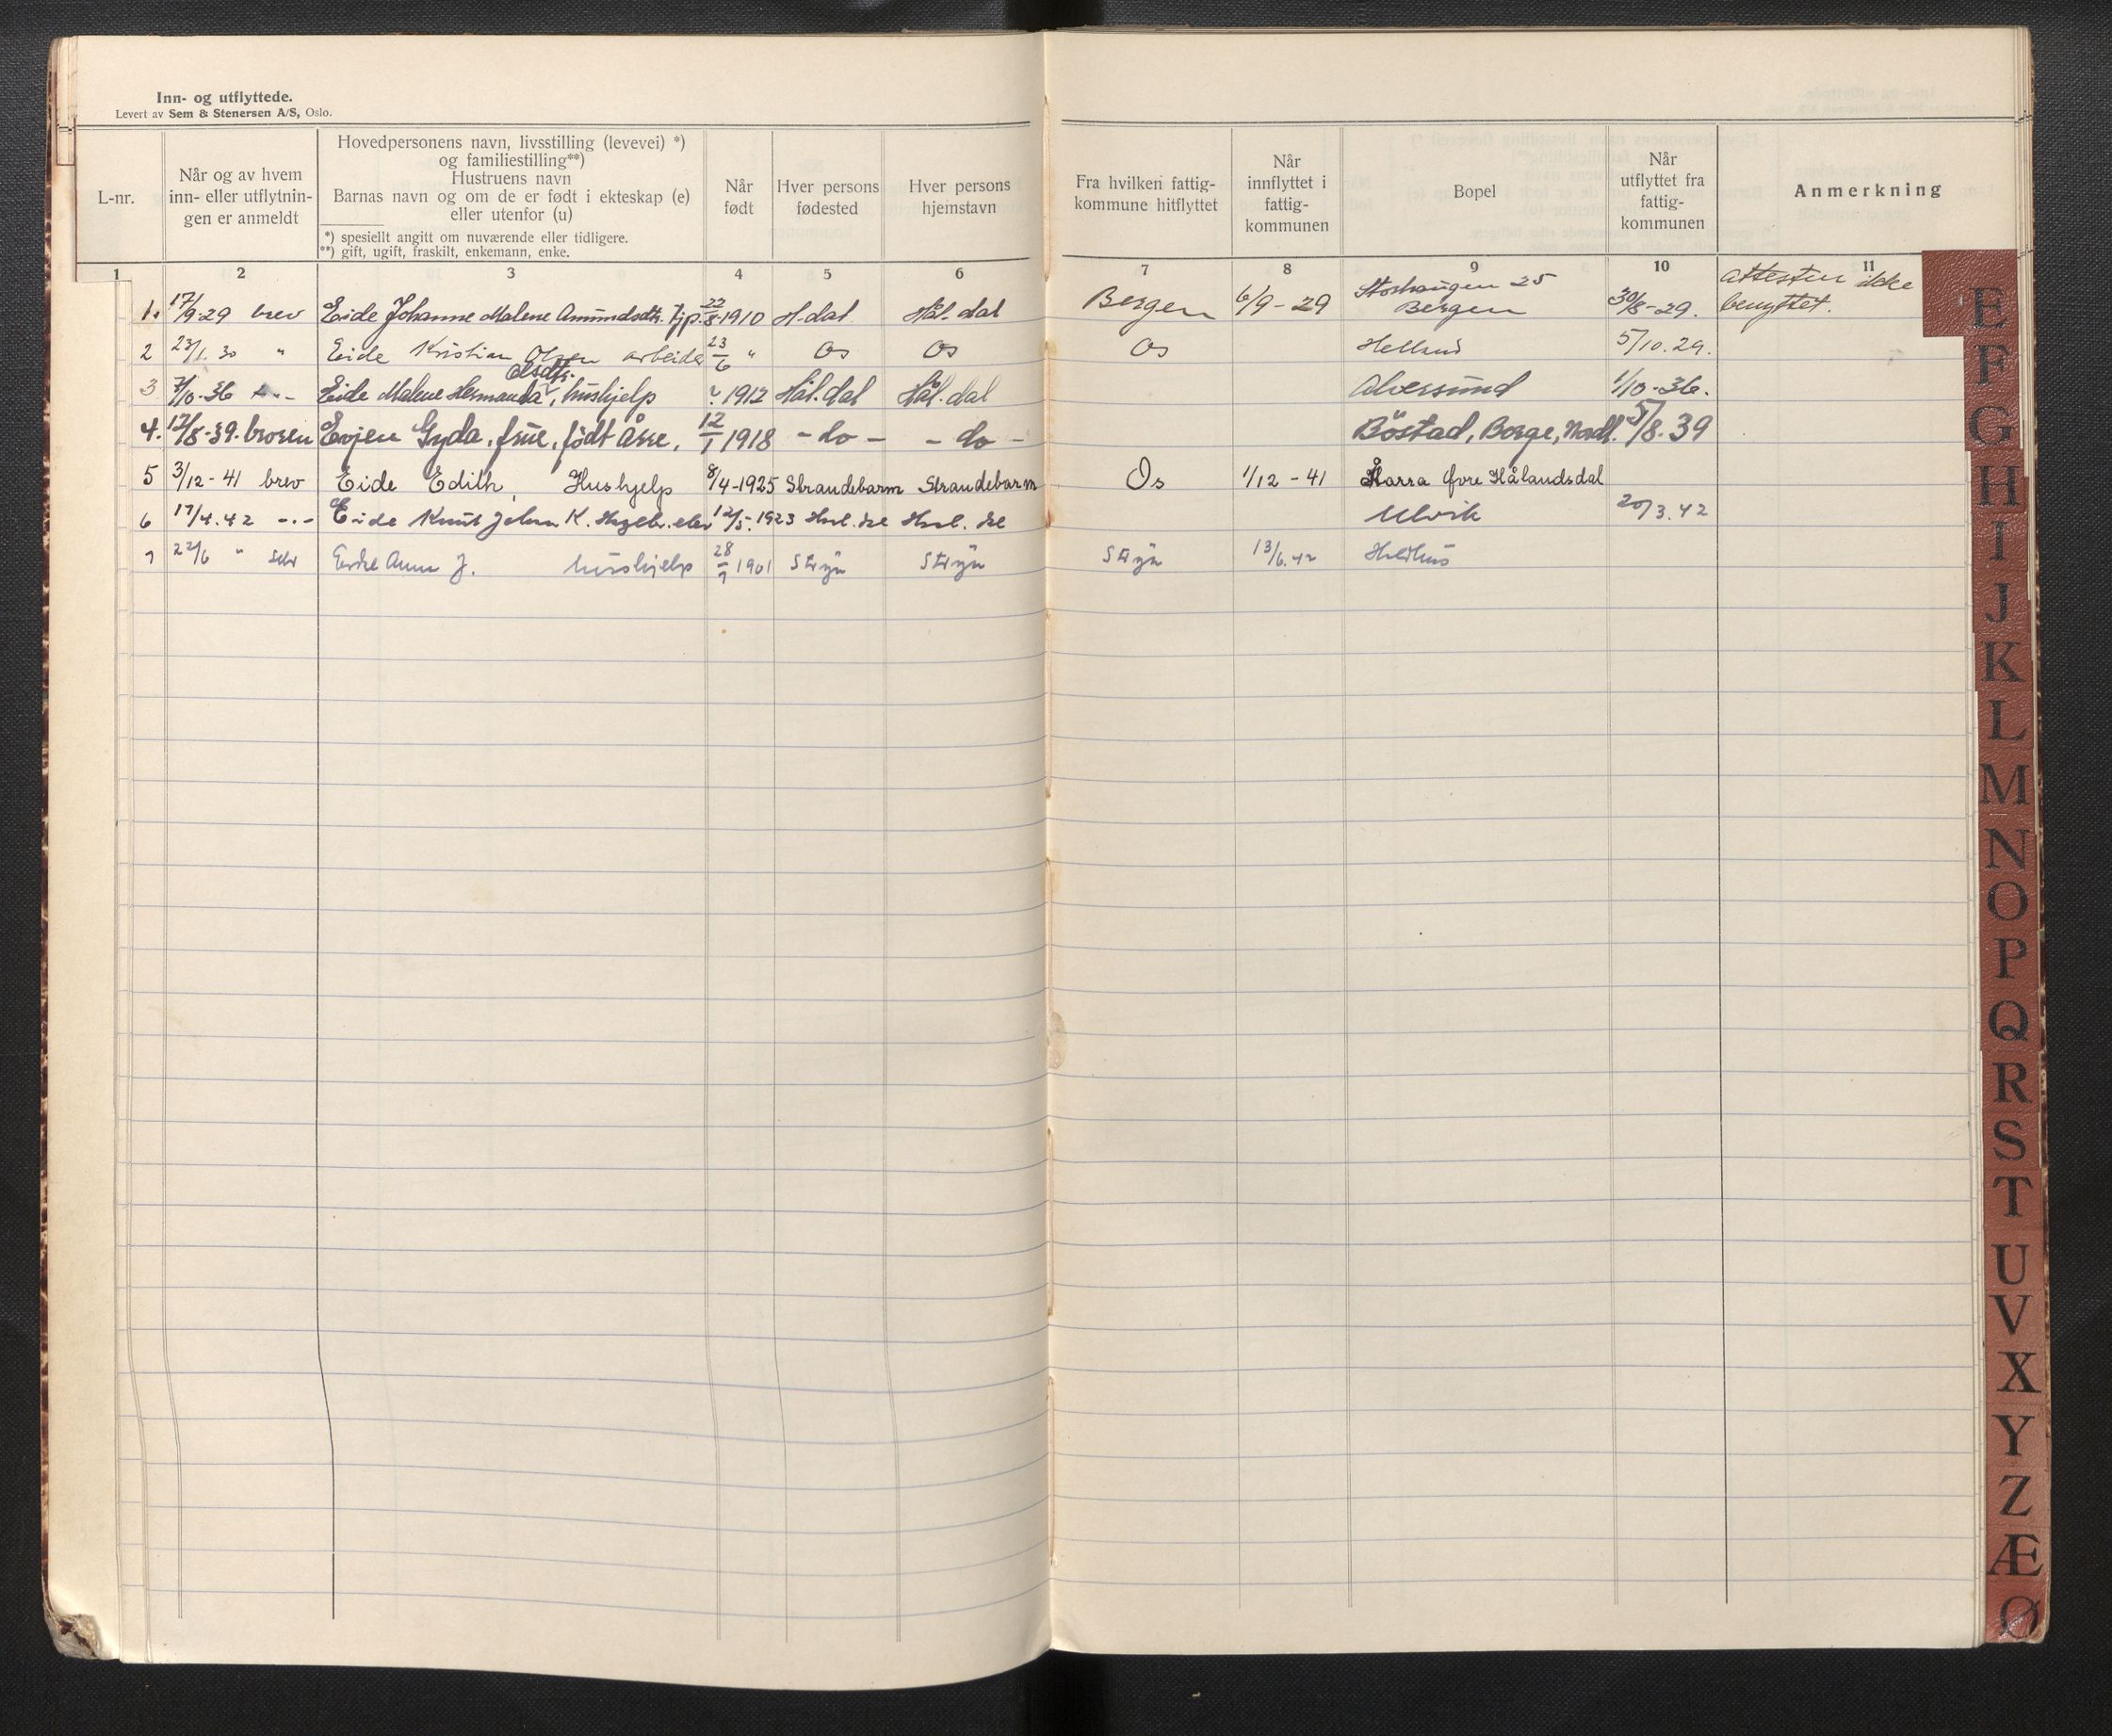 Inn- og utflyttede.
Levert av Sem & Stenersen A/S, Oslo.
L-nr.
Når og av hvem
inn- eller utflytnin-
gen er anmeldt
Hovedpersonens navn, livsstilling (levevei) *)
og familiestilling**)
Hustruens navn
Barnas navn og om de er født i ekteskap (e)
eller utenfor (u)
*) spesiellt angitt om nuværende eller tidligere.
**) gift, ugift, fraskilt, enkemann, enke.
Når
født
Hver persons
fødested
Hver persons
hjemstavn
Fra hvilken fattig-
kommune hitflyttet
Når
innflyttet i
fattig-
kommunen
Bopel
Når
utflyttet fra
fattig-
kommunen
Anmerkning
1 2 3 4 5 6 7 8 9 10 11
1. 17/9-29 brev Eide Johanne Malene Amundsdtr. tjp. 22/8-1910 H-dal Hål-dal Bergen 6/9-29 Storhaugen 25 Bergen 30/8-29. Attesten ikke benyttet.
2 23/1.30 " Eide Kristian Olsen arbeider 23/6 " Os Os Os Helland 5/10.29.
3 7/10-36 Eide Malene Hermanda Olsdtr., hushjelp ? 1912 Hål.dal Hål.dal Alversund 1/10-36.
4. 12/8-39. broren Evjen Gyda, frue, født Åsre, 12/1 1918 - do - - do - Böstad, Borge, Nordl. 5/8.39
5 3/12-41 brev Eide Edith, Hushjelp 8/4-1925 Strandebarm Strandebarm Os 1/12-41 Øvre Hålandsdal
6 17/4.42 -.- Eide Knut Johan K. 12/5.1923 Ulvik 20/3.42
7 22/6 " Selv Eide Anna J. hushjelp 28/9 1901 Stryn Stryn Stryn 13/6.42
E
F
G
H
I
J
K
L
M
N
O
P
Q
R
S
T
U
V
X
Y
Z
Æ
Ø